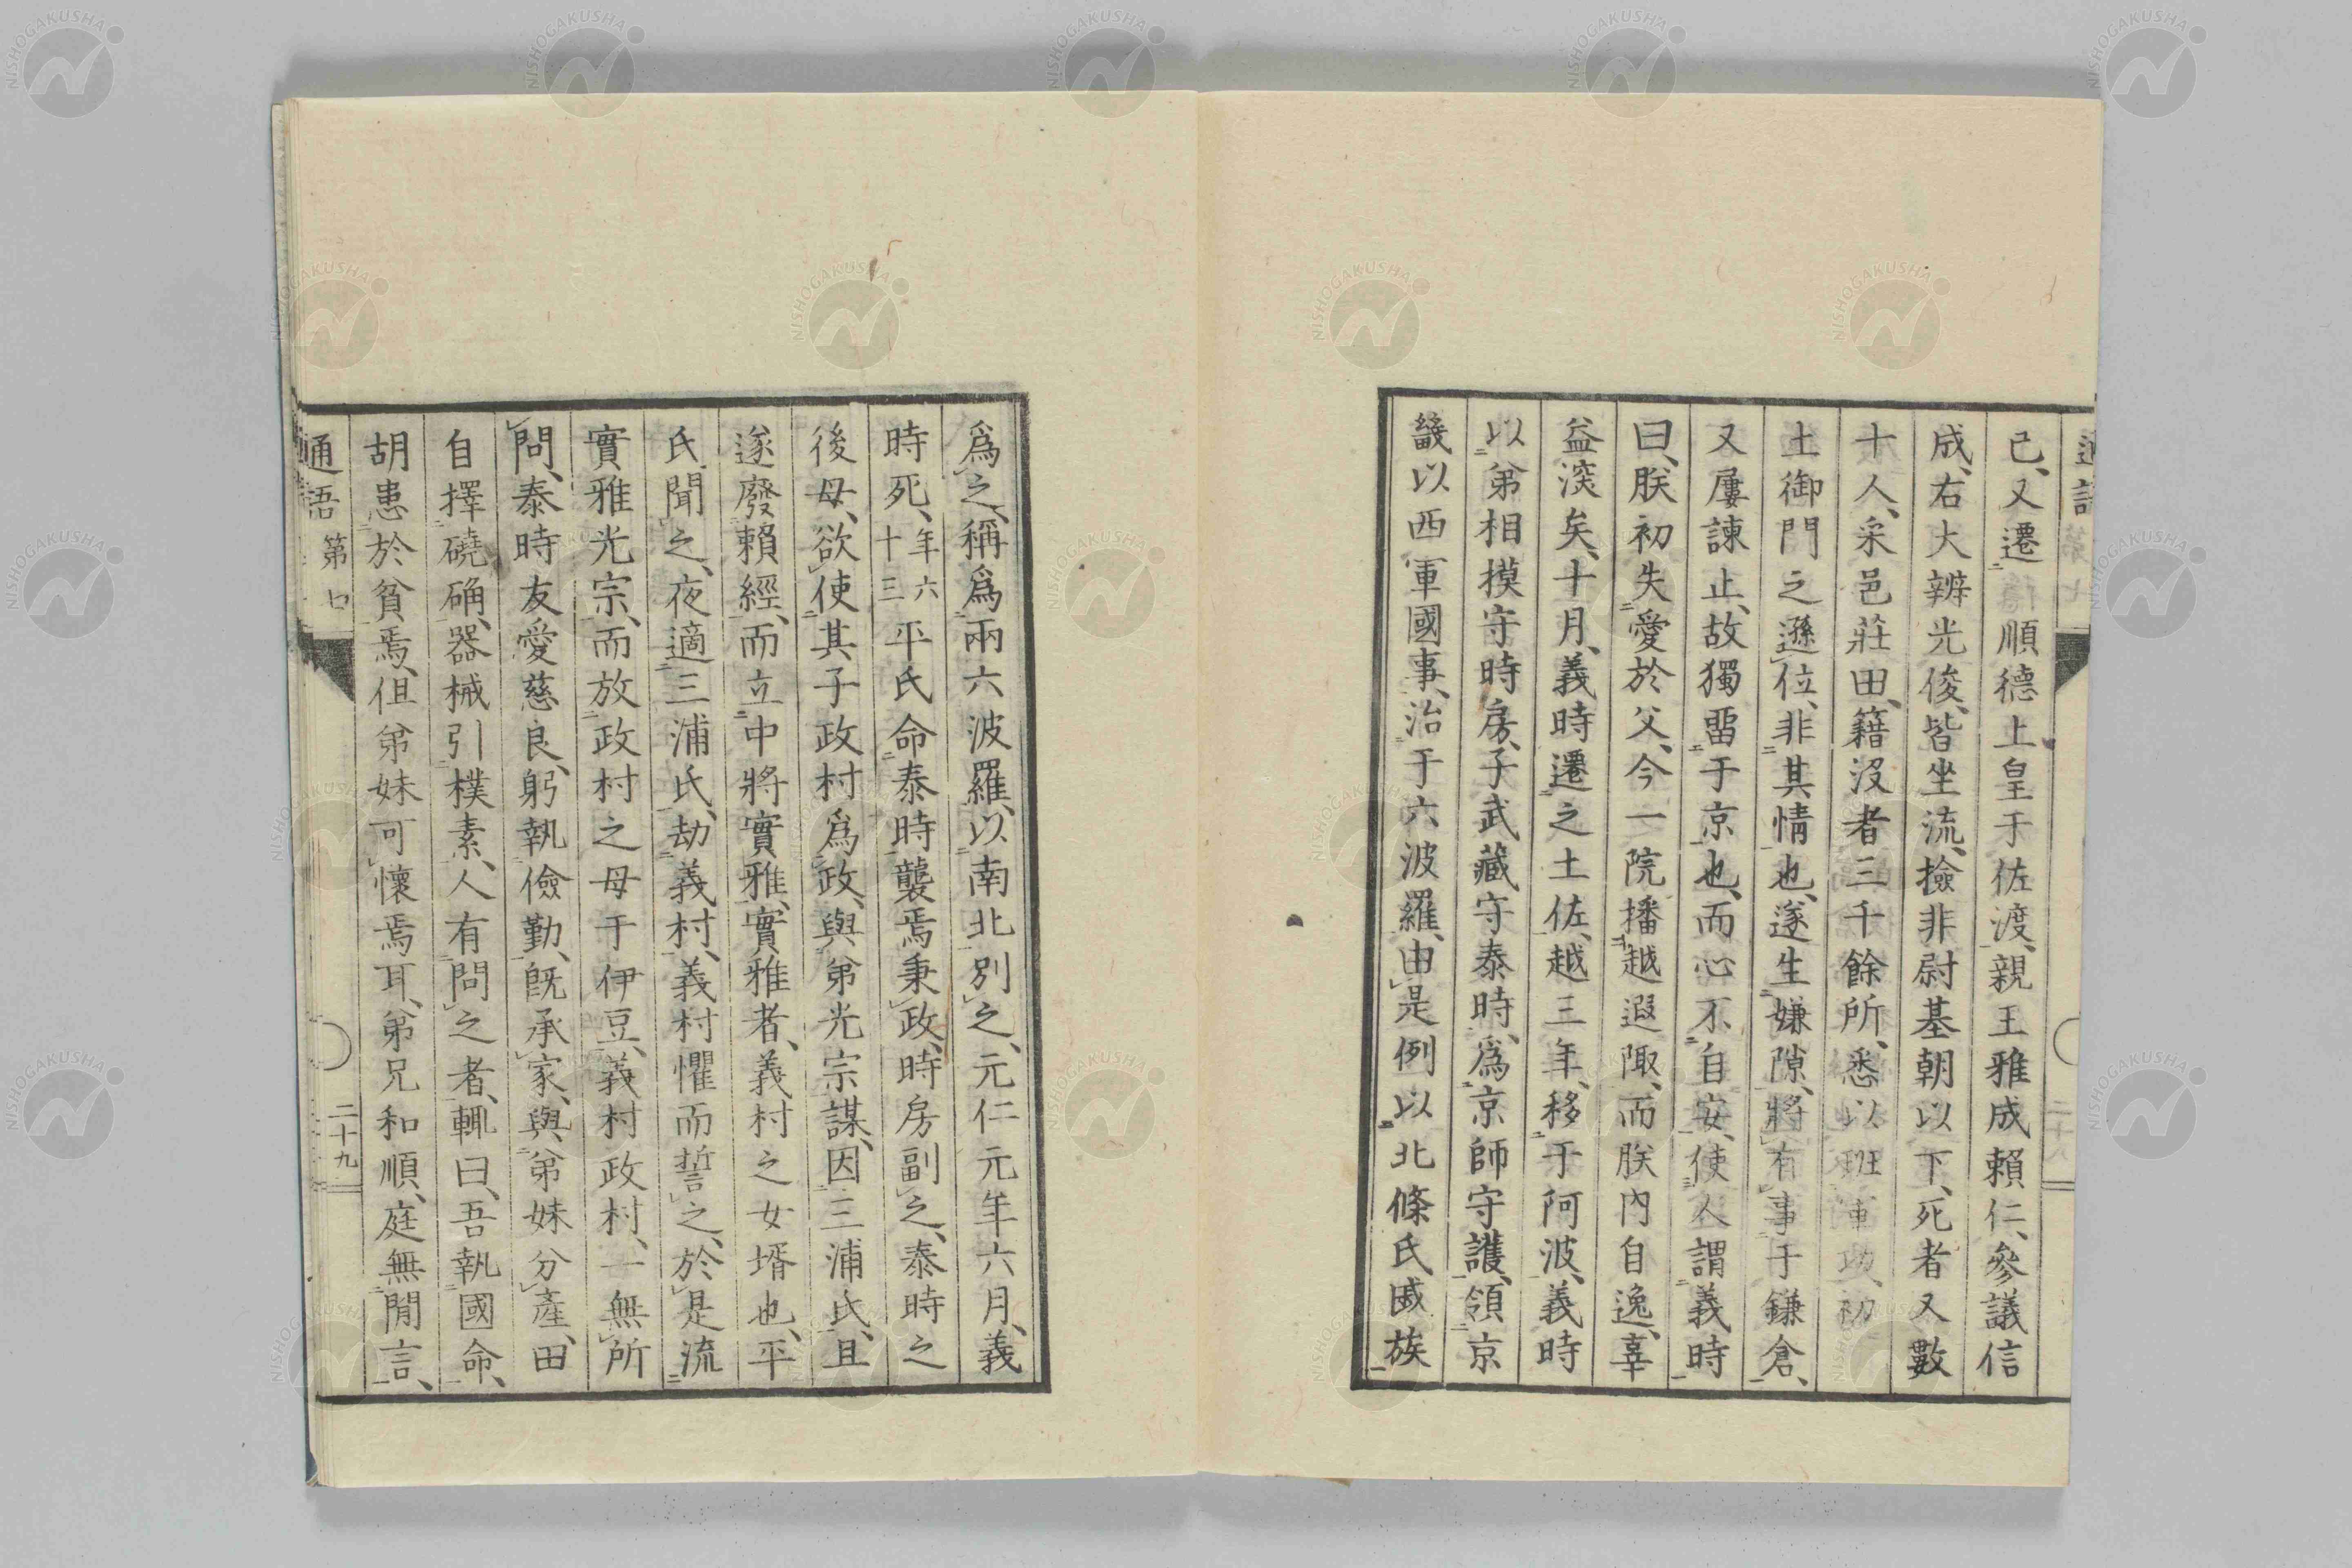 已、又遷順德上皇于佐渡、親王雅成賴仁、參議信
成、右大辨光俊、皆坐流、撿非尉基朝以下、死者又數
十人、采邑莊田、籍沒者三千餘所、悉以班軍功、初
土御門之遜位、非其情也、遂生嫌隙、將有事于鎌倉、
又屢諫止、故獨畱于京也、而心不自安、使人謂義時
曰、朕初失愛於父、今一院播越遐陬、而朕內自逸、辜
益深矣、十月、義時遷之土佐、越三年、移于阿波、義時
以弟相摸守時房、子武藏守泰時、爲京師守護、領京
畿以西軍國事、治于六波羅、由是例以北條氏戚族
爲之、稱爲兩六波羅、以南北別之、元仁元年六月、義
時死、年六十三平氏命泰時襲焉秉政、時房副之、泰時之
後母、欲使其子政村爲政、與弟光宗謀、因三浦氏、且
遂廢賴經、而立中將實雅、實雅者、義村之女壻也、平
氏聞之、夜適三浦氏、劫義村、義村懼而誓之、於是流
實雅光宗、而放政村之母于伊豆、義村政村、一無所
問、泰時友愛慈良、躬執儉勤、旣承家、與弟妹分產、田
自擇磽确、器械引樸素、人有問之者、輒曰、吾執國命、
胡患於貧焉、但弟妹可懷焉耳、弟兄和順、庭無閒言、
通語 第七 二十九